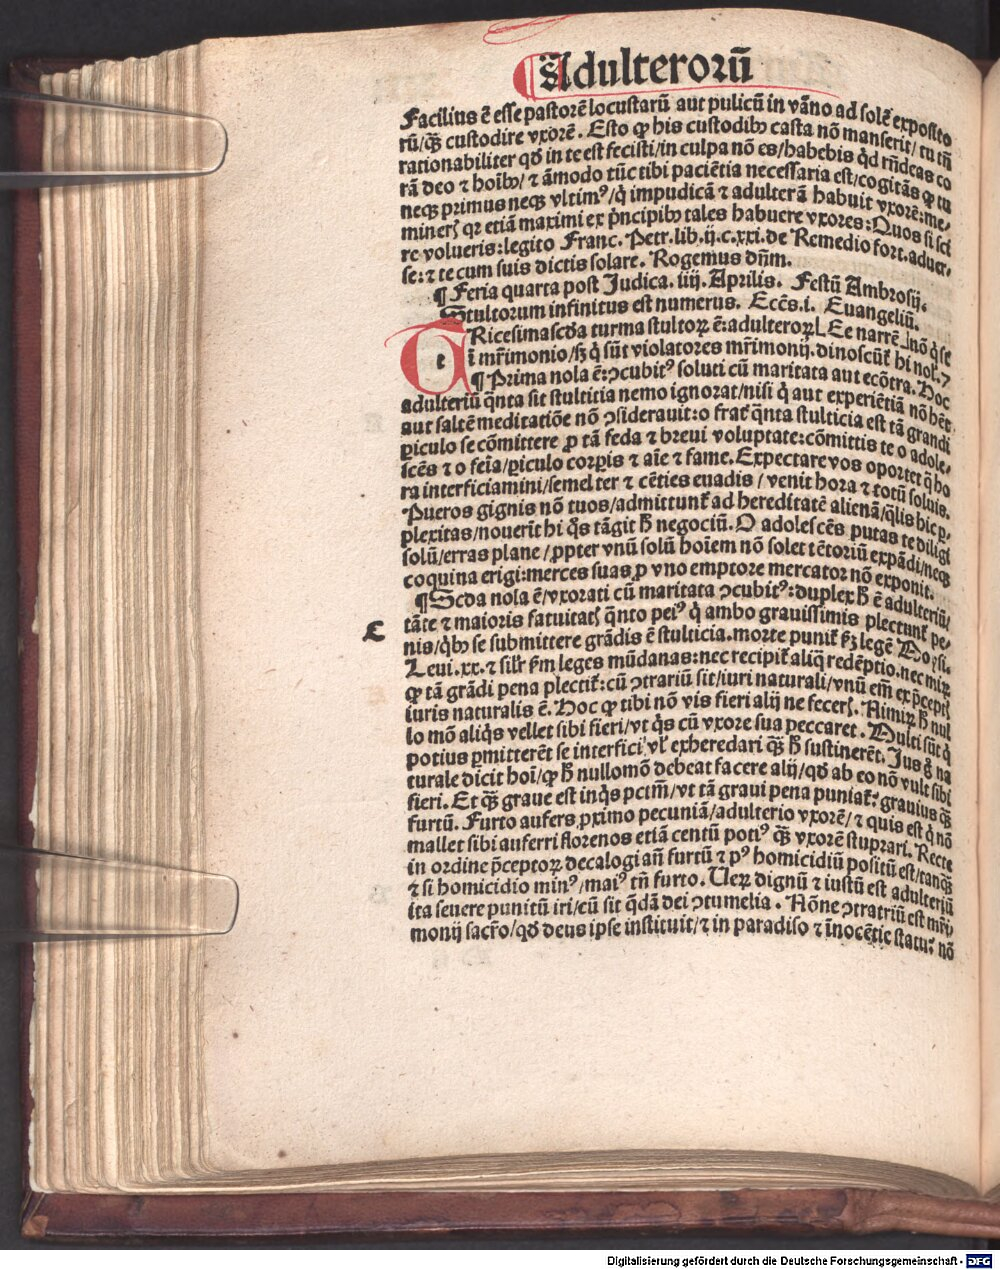 Adulterorū
Facilius ē esse pastorē locustarū aut pulicū in vāno ad solē exposito
rū/q̄ꝫ custodire vxorē. Esto ꝙ his custodibꝰ casta nō manserit/tu tn̄
rationabiliter qd̄ in te est fecisti/in culpa nō es/habebis qd̄ rn̄deas co
rā deo ⁊ hoībꝰ/⁊ āmodo tūc tibi paciētia necessaria est/cogitās ꝙ tu
neqꝫ primus neqꝫ vltimꝰ/q̇ impudicā ⁊ adulterā habuit vxorē: me⸗
minerꝭ qꝛ etiā maximi ex p̄ncipibꝰ tales habuere vxores: Quos si sci
re volueris: legito Franc. Petr. lib. ij. c. xxi. de Remedio fort. aduer⸗
se: ⁊ te cum suis dictis solare. Rogemus dn̄m.
¶ Feria quarta post Judica. iiij. Aprilis. Festū Ambrosij.
Stultorum infinitus est numerus. Eccēs. i. Euangeliū.
t Ricesima scd̄a turma stultoꝝ ē: adulteroꝝ. Ee narrē nō q̇ se
ī mr̄imonio/sꝫ q̇ sūt violatores mr̄imonij. dinoscūt̄ hi nol. 7
¶ Prima nola ē: ꝯcubitꝰ soluti cū maritata aut ecōtra. Hoc
adulteriū q̄nta sit stultitia nemo ignorat/nisi q̇ aut experiētiā nō hēt
aut saltē meditatiōe nō ꝯsiderauit: o frat̄ q̄nta stulticia est tā grandi
ꝑiculo se cōmittere ꝓ tā feda ⁊ breui voluptate: cōmittis te o adole⸗
scēs ⁊ o feīa/ꝑiculo corꝑis ⁊ aīe ⁊ fame. Expectare vos oportet q̄ ho
ra interficiamini/semel ter ⁊ cēties euadis/venit hora ⁊ totū soluis.
Pueros gignis nō tuos/admittunt̄ ad hereditatē alienā/q̄lis hic ꝑ⸗
plexitas/nouerīt hi q̇s tāgit h̄ negociū. O adolescēs putas te diligi
solū/erras plane/ꝓpter vnū solū hoīem nō solet tētoriū expādi/neqꝫ
coquina erigi: merces suas ꝓ vno emptore mercator nō exponit.
¶ Scd̄a nola ē/vxorati cū maritata ꝯcubitꝰ: duplex h̄ ē adulteriū/
tāte ⁊ maioris fatuitatꝭ q̄nto peiꝰ q̇ ambo grauissimis plectunt̄ pe⸗
C
nis/qꝰbꝰ se submittere grādis ē stulticia. morte punit̄ ẜm legē Moysi.
Leui. xx. ⁊ sil̄r ẜm leges mūdanas: nec recipit̄ aliq̄ redēptio. nec miꝝ
ꝙ tā grādi pena plectit̄: cū ꝯtrariū sit/iuri naturali/vnū em̄ ex p̄ceptꝭ
iuris naturalis ē. Hoc ꝙ tibi nō vis fieri alij ne fecerꝭ. Nimiꝝ h̄ nul
lo mō aliq̇s vellet sibi fieri/vt q̇s cū vxore sua peccaret. Multi sūt q̇
potius ꝑmitterēt se interfici/vl̓ exheredari q̄ꝫ h̄ sustinerēt. Jus g̊ na
turale dicit hoī/ꝙ h̄ nullomō debeat facere alij/qd̄ ab eo nō vult sibi
fieri. Et q̄ꝫ graue est inq̇s pctm̄/vt tā graui pena puniat̄: grauius q̄ꝫ
furtū. Furto aufers ꝓximo pecuniā/adulterio vxorē/⁊ quis est q̇ nō
mallet sibi auferri florenos etiā centū potiꝰ q̄ꝫ vxorē stuprari. Recte
in ordine p̄ceptoꝝ decalogi an̄ furtū ⁊ pꝰ homicidiū positū est/tanq̄ꝫ
⁊ si homicidio minꝰ/maiꝰ tn̄ furto. Ueꝝ dignū ⁊ iustū est adulteriū
ita seuere punitū iri/cū sit q̄dā dei ꝯtumelia. Nōne ꝯtratriū est mr̄i⸗
monij sacr̄o/qd̄ deus ipse instituit/⁊ in paradiso ⁊ īnocētie statu: nō
Digitalisierung gefördert durch die Deutsche Forschungsgemeinschaft - DFG